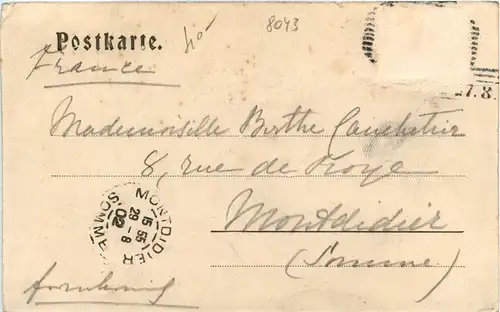 Postkarte.
8043
France
27.8.
Mademoiselle Berthe
8, rue de Troye
Montdidier
(Somme)
MONTDIDIER
15 55
29 - 8
02
SOMME